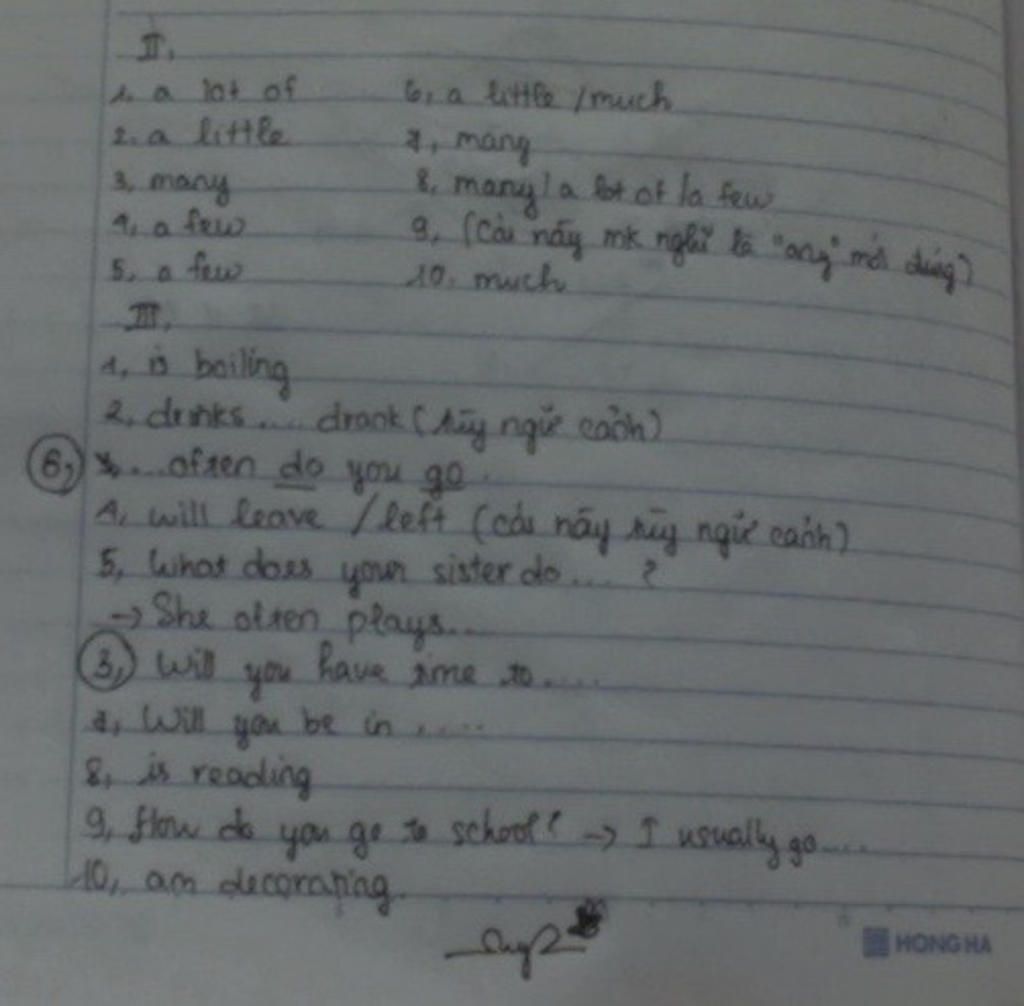 II,
1. a lot of 6, a little / much
2. a little 7, many
3, many 8, many / a lot of / a few
4, a few 9, (Cái này mk nghĩ là "any" mới đúng)
5, a few 10. much
III,
1, is boiling
2, drinks.... drank (tùy ngữ cảnh)
6, .... often do you go.
4, will leave / left (cái này tùy ngữ cảnh)
5, What does your sister do.... ?
→ She often plays...
3, Will you have time to....
7, Will you be in .....
8, is reading
9, How do you go to school? → I usually go....
10, am decorating
HONG HA